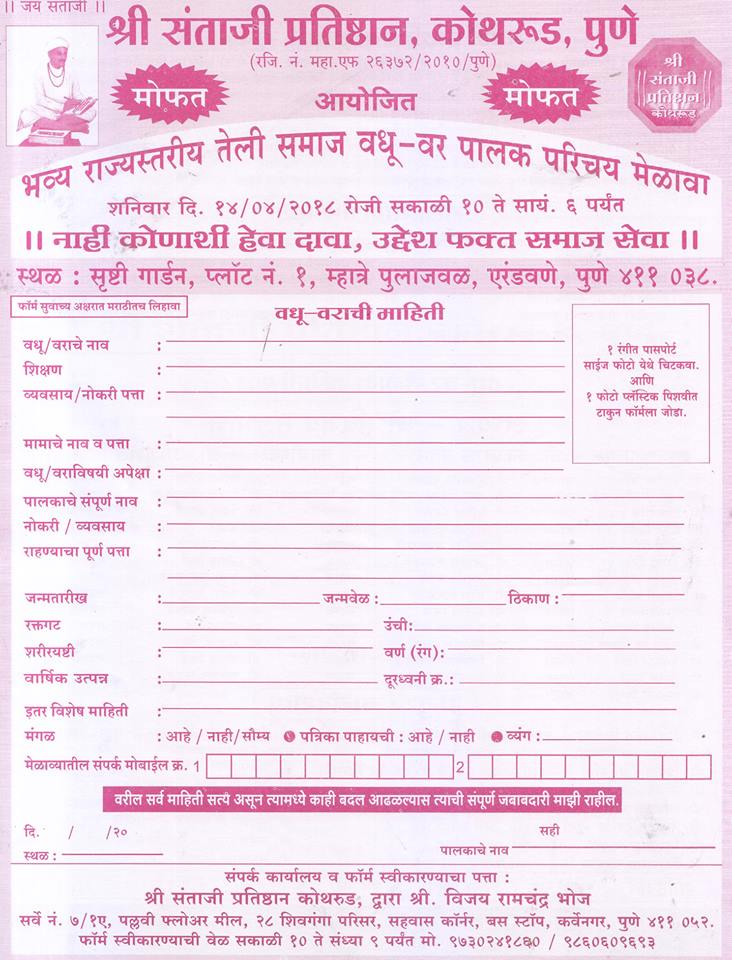 ।। जय संताजी ।।
श्री संताजी प्रतिष्ठान, कोथरूड, पुणे
(रजि. नं. महा.एफ २६३७२/२०१०/पुणे)
मोफत
आयोजित
मोफत
श्री
संताजी
प्रतिष्ठान
कोथरूड
भव्य राज्यस्तरीय तेली समाज वधू-वर पालक परिचय मेळावा
शनिवार दि. १४/०४/२०१८ रोजी सकाळी १० ते सायं. ६ पर्यंत
।। नाही कोणाशी हेवा दावा, उद्देश फक्त समाज सेवा ।।
स्थळ : सृष्टी गार्डन, प्लॉट नं. १, म्हात्रे पुलाजवळ, एरंडवणे, पुणे ४११ ०३८.
फॉर्म सुवाच्य अक्षरात मराठीतच लिहावा
वधू-वराची माहिती
वधू/वराचे नाव :
शिक्षण :
व्यवसाय/नोकरी पत्ता :
मामाचे नाव व पत्ता :
वधू/वराविषयी अपेक्षा :
१ रंगीत पासपोर्ट
साईज फोटो येथे चिटकवा.
आणि
१ फोटो प्लॅस्टिक पिशवीत
टाकुन फॉर्मला जोडा.
पालकाचे संपूर्ण नाव :
नोकरी / व्यवसाय :
राहण्याचा पूर्ण पत्ता :
जन्मतारीख : जन्मवेळ : ठिकाण :
रक्तगट : उंची:
शरीरयष्टी : वर्ण (रंग):
वार्षिक उत्पन्न : दूरध्वनी क्र.:
इतर विशेष माहिती :
मंगळ : आहे / नाही/सौम्य पत्रिका पाहायची : आहे / नाही व्यंग :
मेळाव्यातील संपर्क मोबाईल क्र. 1 2
वरील सर्व माहिती सत्य असून त्यामध्ये काही बदल आढळल्यास त्याची संपूर्ण जबाबदारी माझी राहील.
दि. / /२० सही
स्थळ : पालकाचे नाव
संपर्क कार्यालय व फॉर्म स्वीकारण्याचा पत्ता :
श्री संताजी प्रतिष्ठान कोथरुड, द्वारा श्री. विजय रामचंद्र भोज
सर्वे नं. ७/१ए, पल्लवी फ्लोअर मील, २८ शिवगंगा परिसर, सहवास कॉर्नर, बस स्टॉप, कर्वेनगर, पुणे ४११ ०५२.
फॉर्म स्वीकारण्याची वेळ सकाळी १० ते संध्या ९ पर्यंत मो. ९७३०२४१८६० / ९८६०६०९६९३